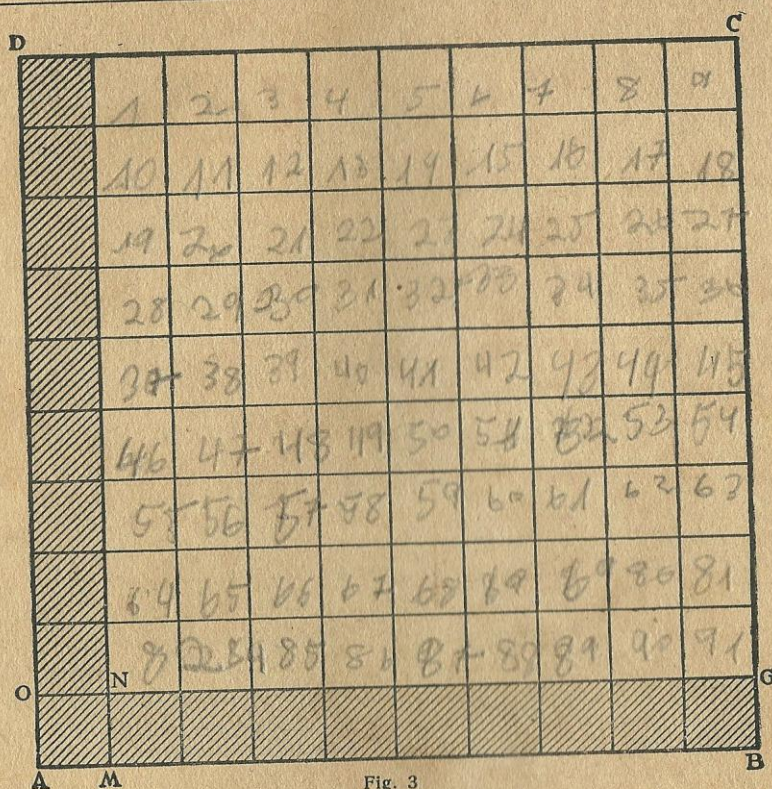 D C
1 2 3 4 5 6 7 8 9
10 11 12 13 14 15 16 17 18
19 20 21 22 23 24 25 26 27
28 29 30 31 32 33 34 35 36
37 38 39 40 41 42 43 44 45
46 47 48 49 50 51 52 53 54
55 56 57 58 59 60 61 62 63
64 65 66 67 68 69 80 81
85 86 87 88 89 90 91
O N G
A M B
Fig. 3